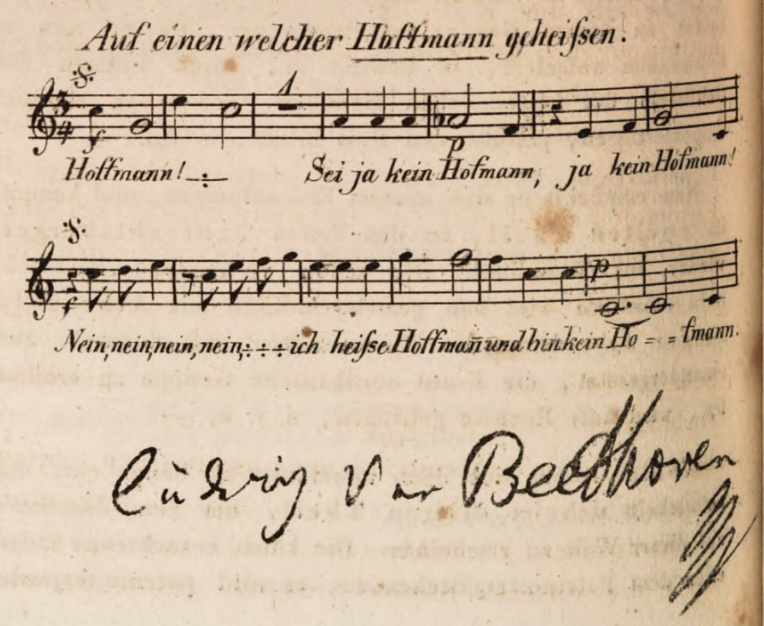 Auf einen welcher Hoffmann geheifsen.
1
f
p
Hoffmann! ÷ Sei ja kein Hofmann, ja kein Hofmann!
f
p
Nein, nein, nein, nein, ÷ ÷ ÷ ich heifse Hoffmann und bin kein Ho = = fmann.
Ludwig van Beethoven